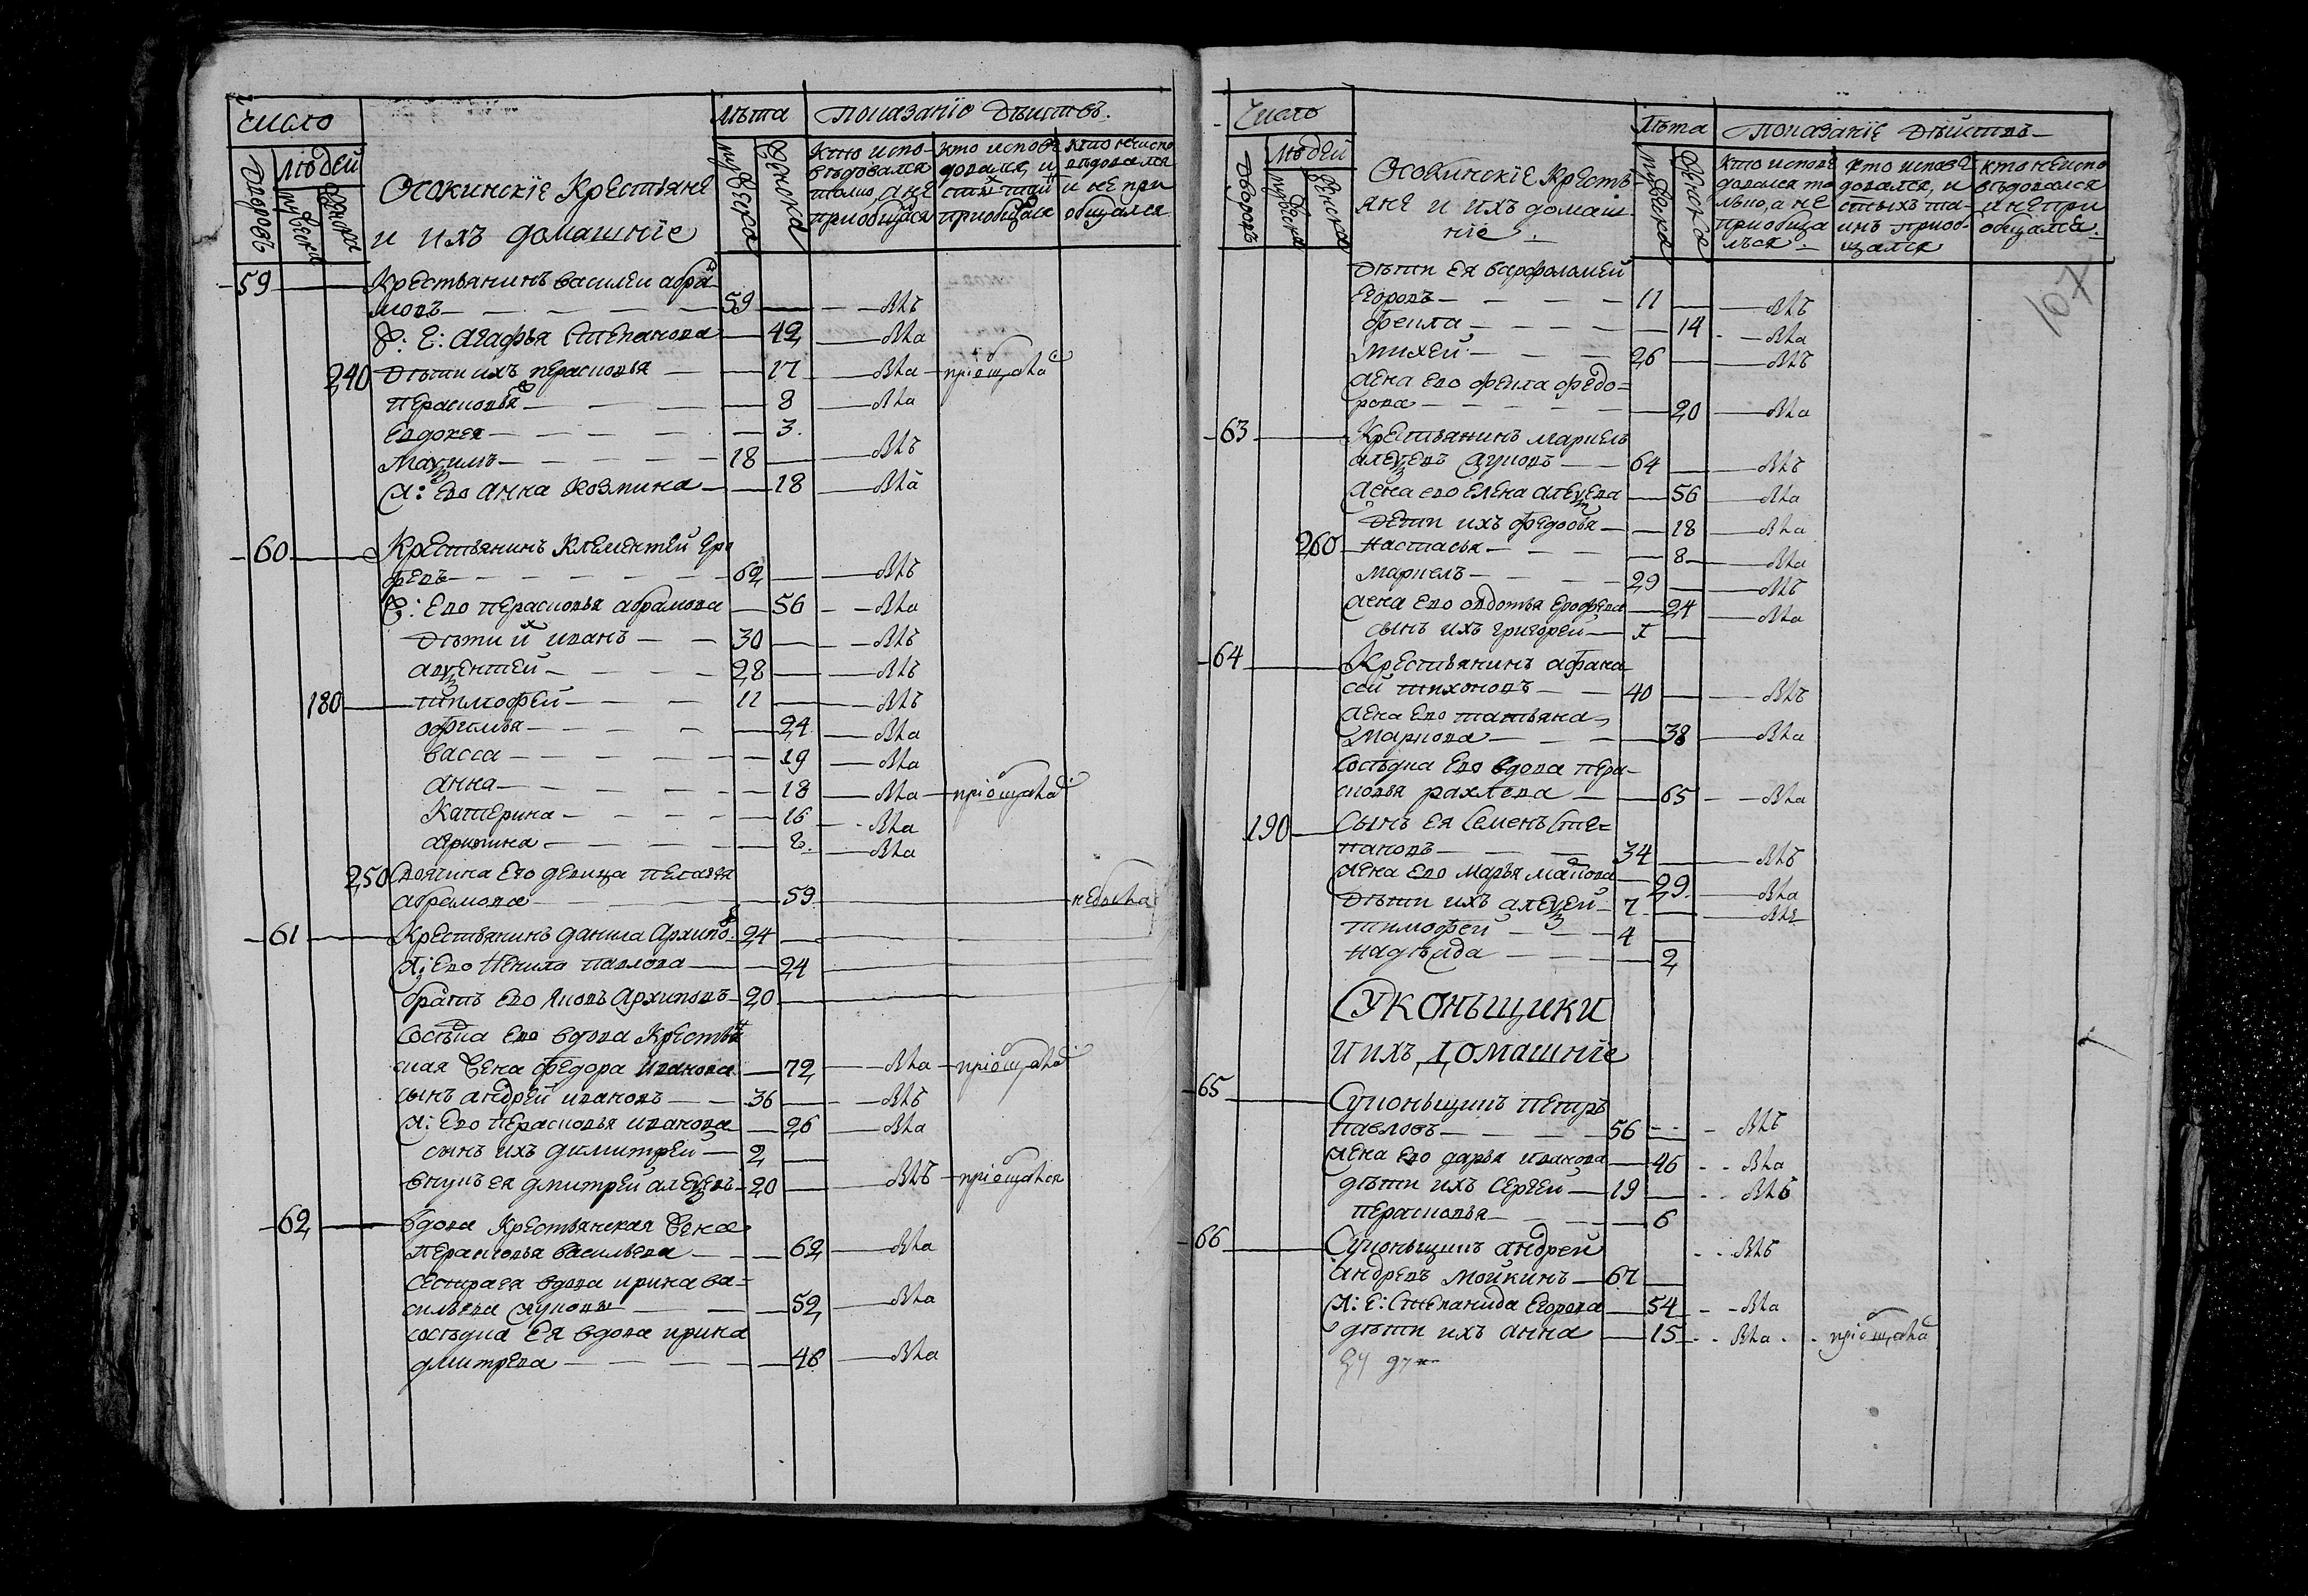 число
лѣта
показанїю дѣиствъ.
дворовъ
людей
мужеска
женска
Осокинскїе Крестьяне
и ихъ домашнїе
мужеска
женска
кто испо-
вѣдовался
толко, а не
приобщася
кто исповѣ
довался, и
стых таи
приобщася
кто неиспо
вѣдовался
и не при
общался
59
Крестьянинъ василеи абра
мовъ 59 былъ
Ж: Е: Агафья Степанова 42 была
240 дѣти ихъ перасковья 17 была приобщала
перасковья 8 была
Евдокея 3
Маѯимъ 18 былъ
Ж: Ево Анна Козмина 18 была
60 Крестьянинъ Клементеи Еро
фѣевъ 62 былъ
Ж: Ево перасковья абрамова 56 была
дѣти их иванъ 30 былъ
авѯентей 28 былъ
180 тимофей 11 былъ
офимья 24 была
васса 19 была
анна 18 была приобщала
Катерина 16 была
акулина 8 была
250 своячина Ево девица пелагея
абрамова 59 небыла
61 Крестьянинъ данила Архипо 24
Ж: Ево Ненила павлова 24
братъ Ево Яковъ Архиповъ 20
Сосѣдка Ево вдова Крестьян
ская жена федора иванова 72 была приобщала
сынъ андрей ивановъ 36 былъ
Ж: Ево перасковья иванова 26 была
сынъ ихъ димитреи 2
внукъ ея дмитреи алеѯѣевъ 20 былъ приобщался
62 вдова Крестьянская жена
перасковья васильева 62 была
сестра ея вдова ирина ва-
сильева 52 была
сосѣдка Ея вдова ирина
дмитрева 48 была
Число
лѣта
показанїе дѣиствъ
дворовъ
людей
мужеска
женска
Осокинскїе Кресть
яне и ихъ домаш
нїе
мужеска
женска
кто исповѣ
довался то
лько, а не
приобща
лься
кто исповѣ
довался, и
стыхъ та-
инъ приоб-
щался
кто неиспо
вѣдовался
и не при
общался
167
дѣти Ея варфоломей
Егоровъ 11 былъ
фекла 14 была
михей 26 былъ
жена Ево фекла федо-
рова 20 была
63 Крестьянинъ маркелъ
алеѯѣевъ 64 былъ
жена ево Елена алеѯѣева 56 была
дети ихъ федосья 18 была
260 настасья 8 была
маркелъ 29 былъ
жена Ево овдотья Ерофѣева 24 была
сынъ ихъ григореи 1
64 Крестьянинъ афана
сей тихоновъ 40 былъ
жена Ево татьяна
Маркова 38 была
Сосѣдка Ево вдова пера-
сковья 65 была
190 Сынъ ея Семенъ Сте-
пановъ 34 былъ
жена Ево Марья 29 была
дѣти ихъ алеѯѣй 7 былъ
тимофей 4
надѣжда 2
Суконьщики
и ихъ домашнїе
65
Суконьщикъ петръ
павловъ 56 былъ
жена Ево дарья иванова 46 была
дѣти ихъ Сергеи 19 былъ
перасковья 6
66 Суконьщикъ андрей былъ
андреевъ мойкинъ 67
Ж: Е: Степанида Егорова 54 была
дѣти ихъ анна 15 была приобщала